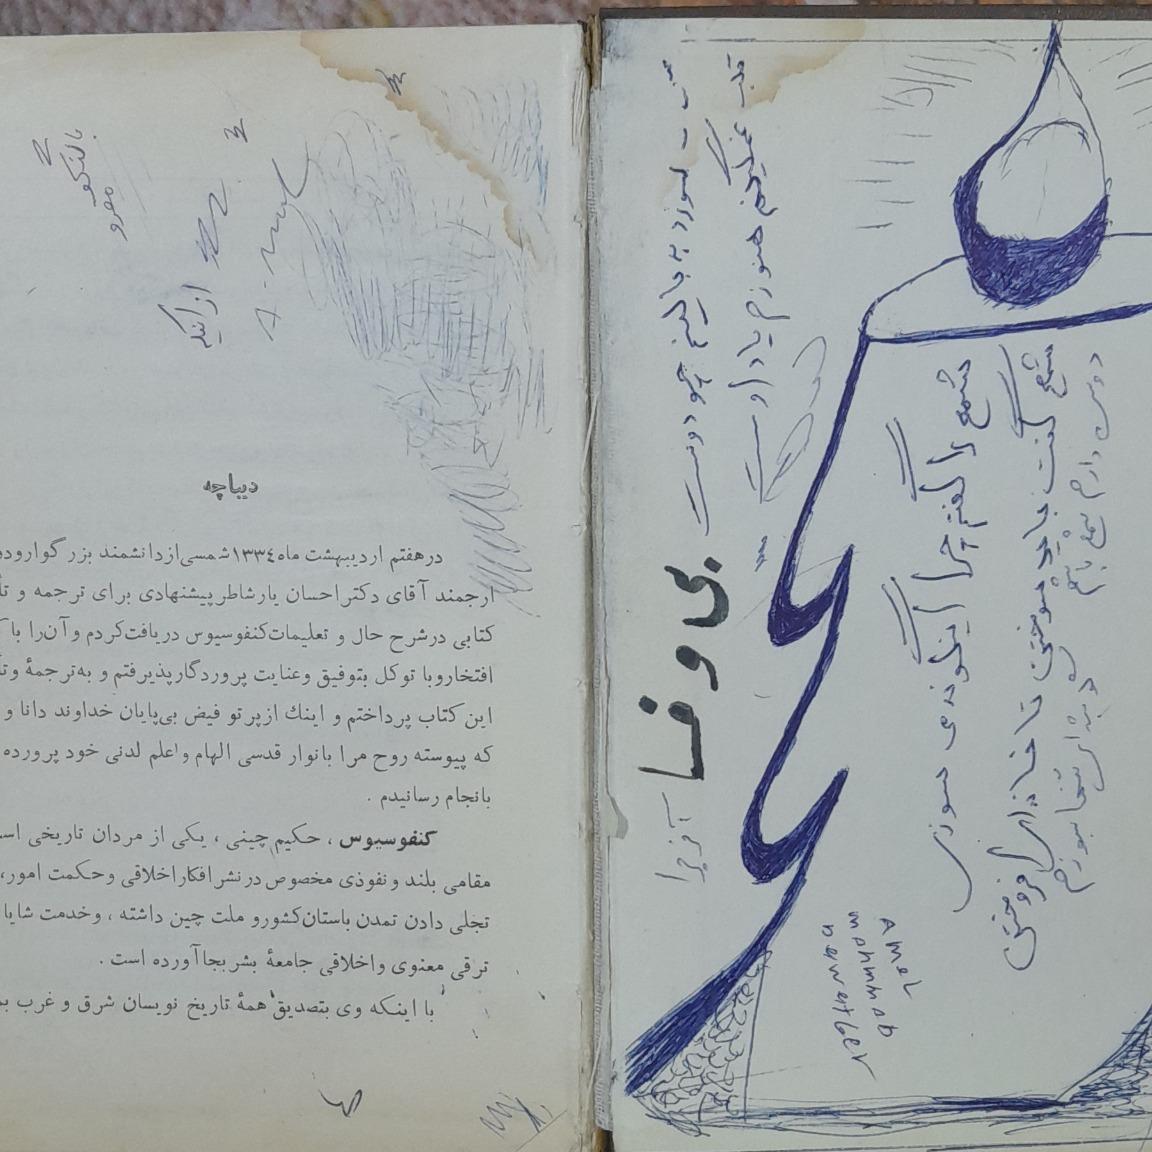 دیباچه
درهفتم اردیبهشت ماه ۱۳۳٤ شمسی‌از دانشمند بزرگوار ودو
ارجمند آقای دکتر احسان یارشاطر پیشنهادی برای ترجمه و تأ
کتابی درشرح حال و تعلیمات کنفوسیوس دریافت کردم و آن‌را با ک
افتخار و با توکل بتوفیق وعنایت پروردگار پذیرفتم و به‌ترجمهٔ وتأ
این کتاب پرداختم و اینك از پرتو فیض بی‌پایان خداوند دانا و
که پیوسته روح مرا بانوار قدسی الهام و اعلم لدنی خود پرورده
بانجام رسانیدم .
کنفوسیوس ، حکیم چینی ، یکی از مردان تاریخی اس
مقامی بلند و نفوذی مخصوص درنشر افکار اخلاقی وحکمت امور،
تجلی دادن تمدن باستان کشورو ملت چین داشته ، وخدمت شایا
ترقی معنوی و اخلاقی جامعهٔ بشر بجا آورده است .
با اینکه وی بتصدیق همهٔ تاریخ نویسان شرق و غرب بم
قلب غمگینم هنوزم یاد اوست
بی وفا
آخر چرا
شمع را گفتم چرا اینگونه می سوزی
شمع گفت باید سوختن تا خانه ای افروختن
دوست دارم شمع باشم